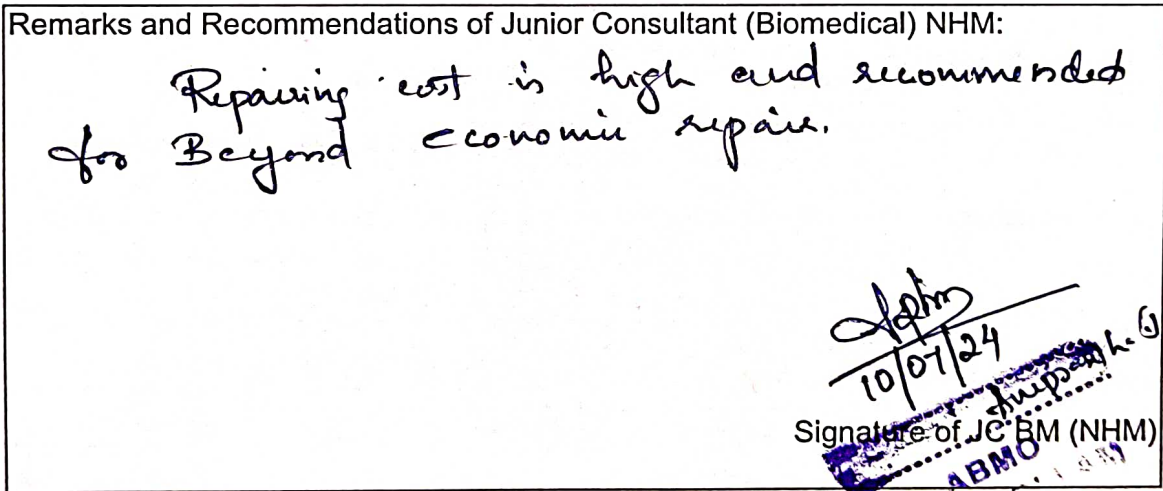 Remarks and Recommendations of Junior Consultant (Biomedical) NHM:
Repairing cost is high and recommended
for Beyond economic repair.
10/07/24
Signature of JC BM (NHM)
ABMO